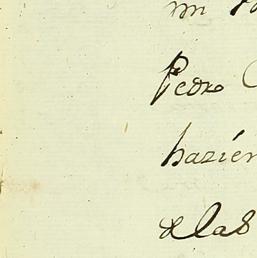 mi
Pedro
hazién
delas